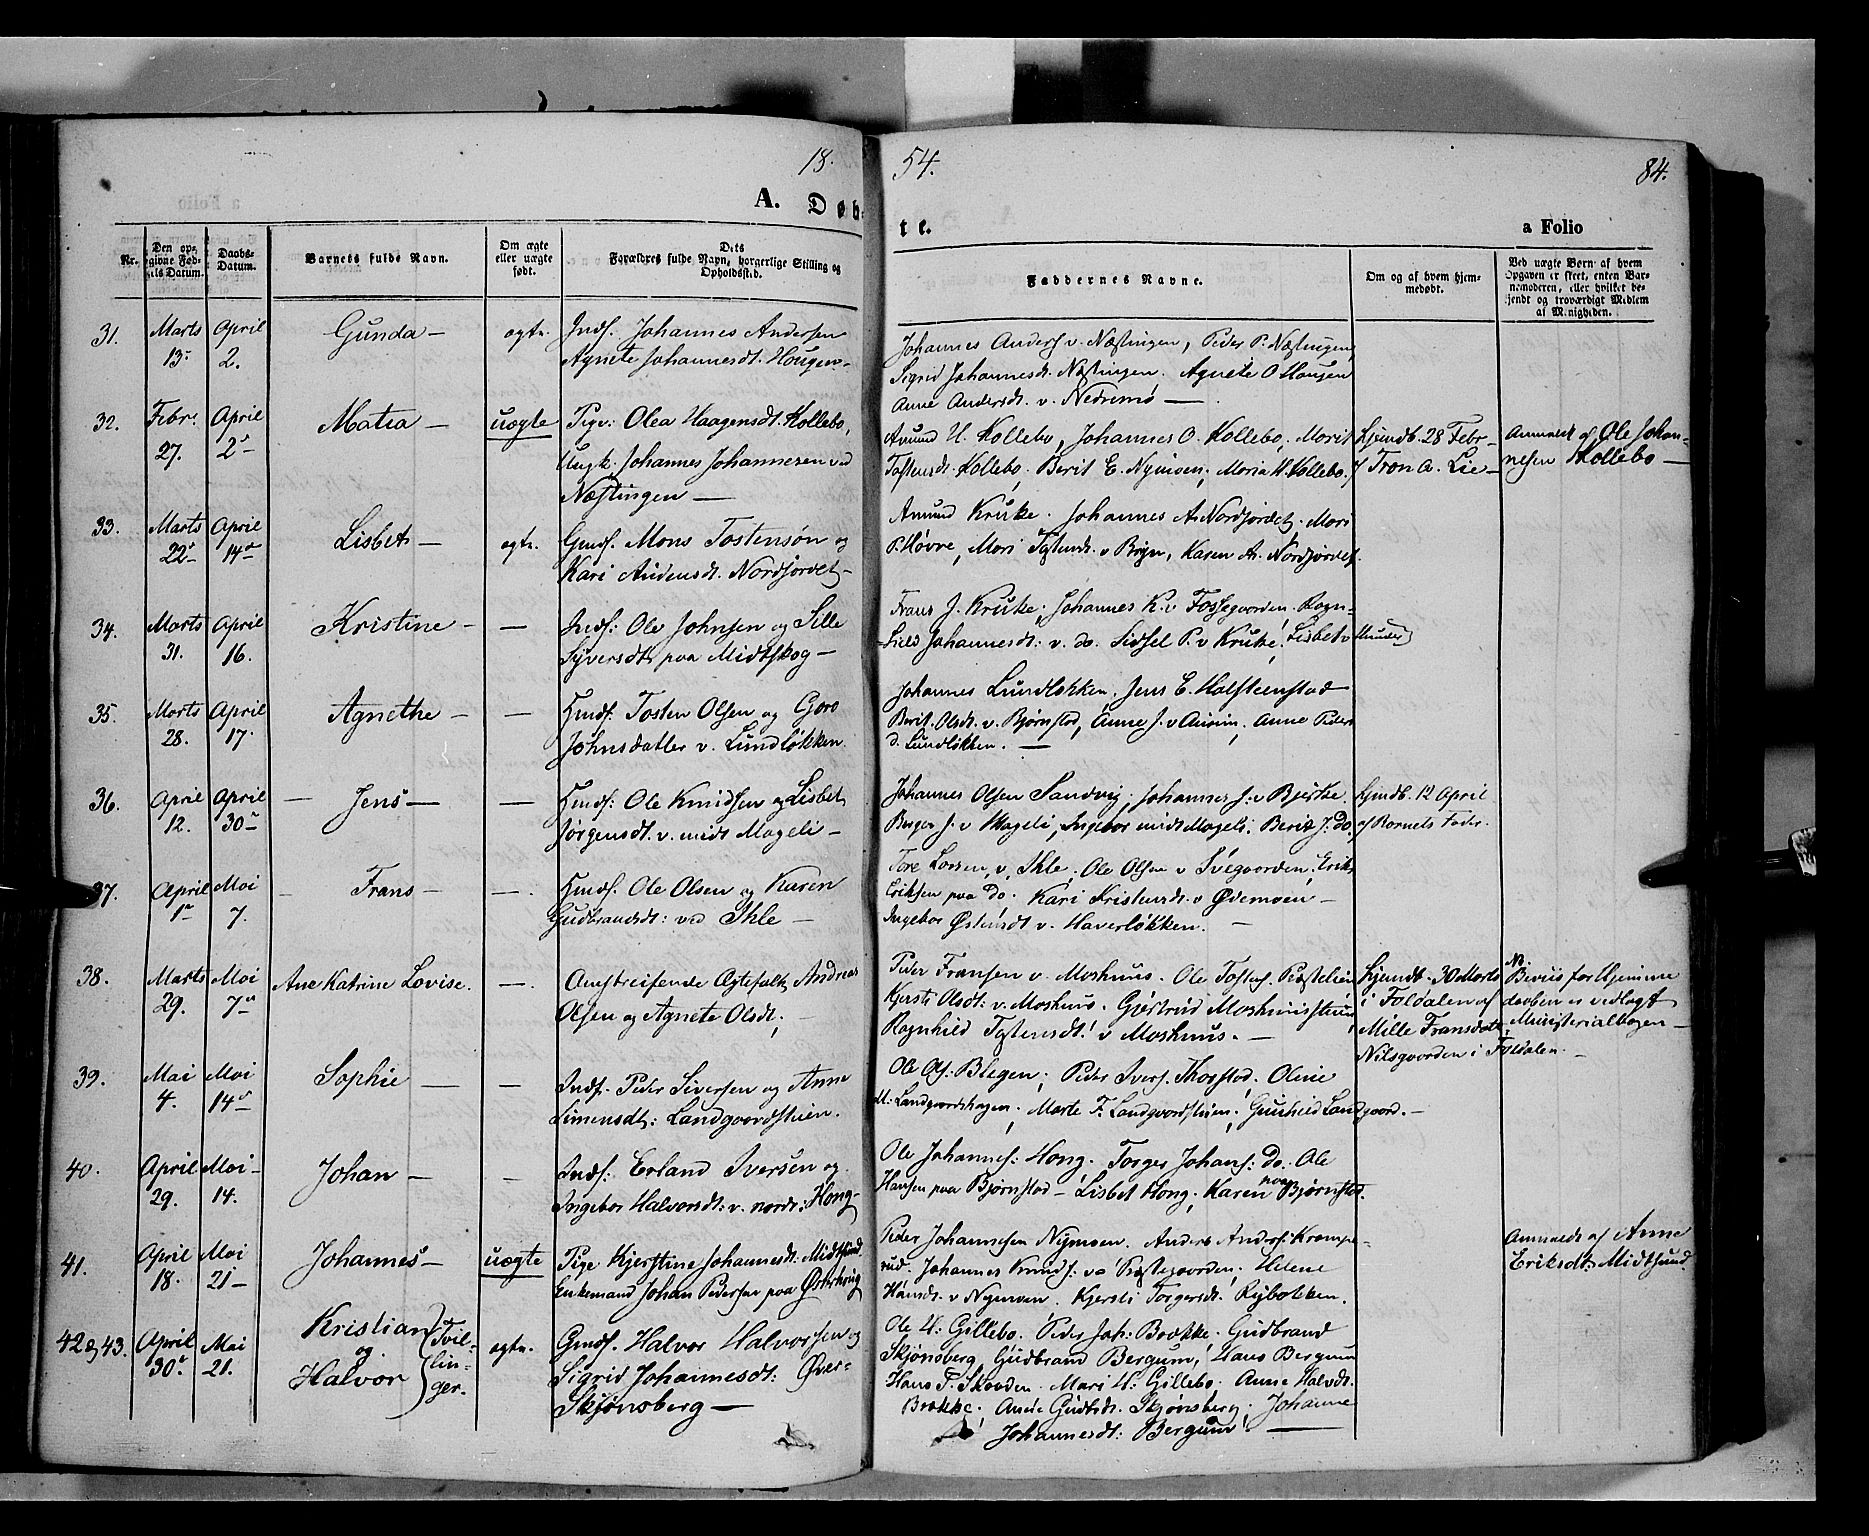 18.
54.
84.
A. Døb-
te.
a Folio
Nr.
Den op-
givne Fød-
sels Datum.
Daabs-
Datum.
Barnets fulde Navn.
Om ægte
eller uægte
født.
Dets
Forældres fulde Navn, borgerlige Stilling og
Opholdssted.
Faddernes Navne.
Om og af hvem hjem-
medøbt.
Ved uægte Børn af hvem
Opgaven er skeet, enten Bar-
nemoderen, eller hvilket be-
kjendt og troværdigt Medlem
af Menigheden.
31.
Marts
13.
April
2.
Gunda –
ægte.
Indf. Johannes Andersen
Agnete Johannesdt. Hougen –
Johannes Anders v. Næstingen, Peder P. Næstingen
Sigrid Johannesdt. Næstingen. Agnete O Hougen
Anne Andersdt. v. Nedremo —
32.
Febr.
27.
April
2
Matia –
uægte
Pige: Olea Haagensdt. Kollebo,
Ungk. Johannes Johannesen ved
Næstingen —
Amund H. Kollebo, Johannes O. Kollebo, Marit
Tostensdt. Kollebo, Berit E. Nymoen, Maria H. Kollebo.
Hjemdb. 28 Febr –
af Tron A. Lie –
Anmeldt af Ole Johan-
nesen Kollebo —
33.
Marts
22
April
14
Lisbet –
ægte.
Gmdf. Mons Tostensøn og
Kari Audensdt. Nordjordet –
Amund Kruke. Johannes A. Nordjordet. Mari
P. Høvre, Mari Tostensdt. v Bryn, Karen A. Nordjordet.
34.
Marts
31.
April
16.
Kristine –
—
Indf: Ole Johnsen og Sille
Syversdt. paa Midtskog –
Frans J. Kruke, Johannes K. v Fossegaarden. Ragn-
hild Johannesdt: v. do. Sidsel P. v Kruke, Lisbet v
35.
Marts
28.
April
17.
Agnethe –
—
Hmdf: Tosten Olsen og Goro
Johnsdatter v. Lundløkken.
Johannes Lundløkken. Jens E. Holsteenstad
Berit Olsdt. v. Bjørnstad, Anne J. v Aurum, Anne Peders
d. Lundløkken. —
36.
April
12.
April
30
– Jens –
—
Hmdf: Ole Knudsen og Lisbet
Jørgensdt. v. midt Mageli –
Johannes Olsen Sandvig, Johannes J. v Bjerke.
Berger J. v Mageli, Ingebor midt Mageli. Berit J. do.
Hjemdb. 12 April
af Barnets Fader.
37.
April
1
Mai
7.
– Frans –
—
Hmdf: Ole Olsen og Karen
Gudbrandsdt: ved Ihle –
Tore Larsen, v. Ihle, Ole Olsen v Svegaarden, Erik
Eriksen paa Do. Kari Kristensdt. v Ødemoen –
Ingebor Østensdt v. Haverløkken. –
38.
Marts
29.
Mai
7
Ane Katrine Lovise.
—
Omstreifende Ægtefolk Andreas
Olsen og Agnete Olsdt; –
Peder Fransen v. Moshuus. Ole Tostens. Præstelien
Kjersti Olsdt: v. Moshuus. Gjertrud Moshuusstuen
Ragnhild Tostensdt: v Moshuus. –
Hjemdt. 30 Marts
i Foldalen af
Mille Fransdatt.
Nilsgaarden i Foldalen. –
Beviis for Hjemme
daaben er vedlagt
Ministerialbogen –
39.
Mai
4.
Mai
14
Sophie –
—
Indf. Peder Siversen og Anne
Simensdt: Landgaardsstuen.
Ole Ols. Blegen, Peder Ivers. Thorstad, Oline
M. Landgaardshagen, Marte T. Landgaardstuen, Gunhild Landgaard. –
40.
April
29.
Mai
14.
Johan –
—
Indf: Erland Iversen og
Ingebor Halvorsdt: v. nordr: Hong –
Ole Johannes: Hong. Torger Johans: Do. Ole
Hansen paa Bjørnstad – Lisbet Hong, Karen paa Bjørnstad.
41.
April
18.
Mai
21
Johannes –
uægte
Pige Kjerstine Johannesdt. Midtsund
Enkemand Johan Pedersen paa Østkrug
Peder Johannesen Nymoen. Anders Anders. Krampe-
rud. Johannes Knuds: va Præstegaarden. Helene
Hansdt. v Nymoen. Kjersti Torgersdt. Rybakken.
Anmeldt af Anne
Eriksdt: Midtsund.
42 og 43.
April
30
Mai
21.
Kristian
og
Halvor
Tvil-
lin-
ger.
ægte.
Gmdf. Halvor Halvorsen og
Sigrid Johannesdt: Øvre-
Skjønsberg —
Ole H: Gillebo. Peder Joh: Brække. Gudbrand
Skjønsberg, Gudbrand Bergum, Hans Bergum
Hans F. Skovden. Mari H: Gillebo. Anne Halvdt.
Brække, Anne Gudbdt. Skjønsberg. Johanne
Johannesdt: Bergum. —